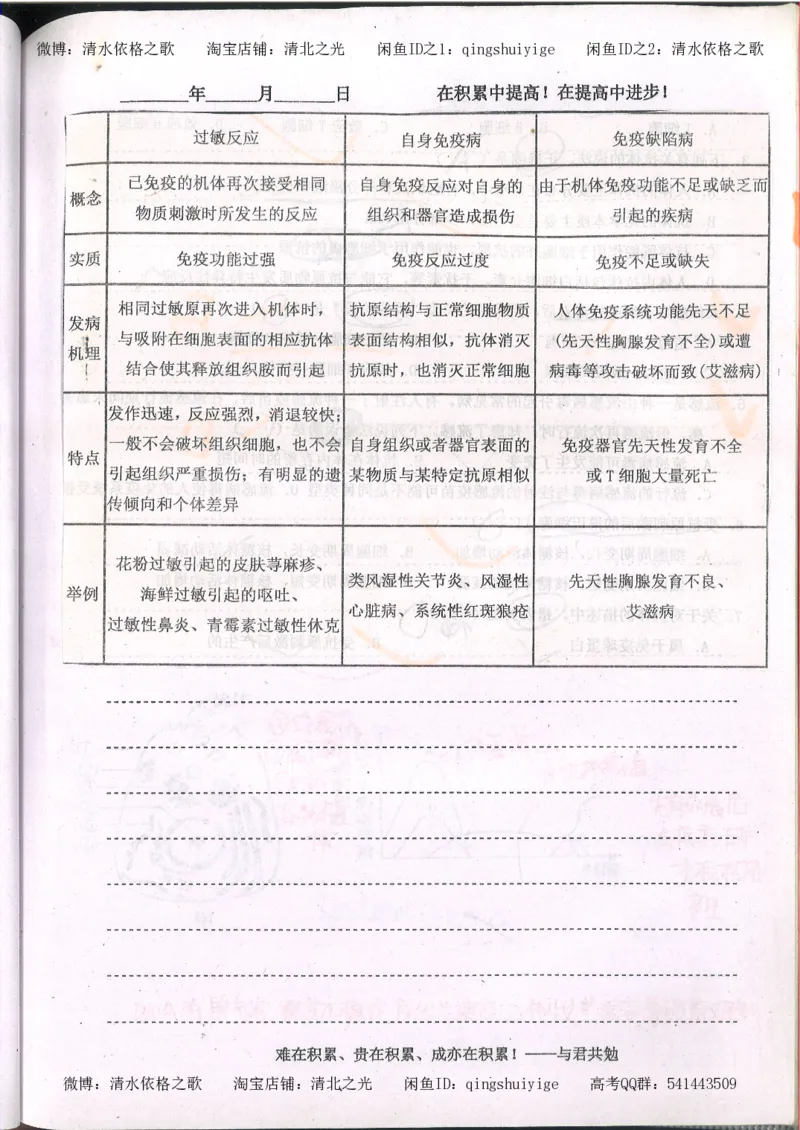 微博：清水依格之歌 淘宝店铺：清北之光 闲鱼ID之1：qingshuiyige 闲鱼ID之2：清水依格之歌
______年______月______日 在积累中提高！在提高中进步！
过敏反应 自身免疫病 免疫缺陷病
概念
已免疫的机体再次接受相同
物质刺激时所发生的反应
自身免疫反应对自身的
组织和器官造成损伤
由于机体免疫功能不足或缺乏而
引起的疾病
实质 免疫功能过强 免疫反应过度 免疫不足或缺失
发病
机理
相同过敏原再次进入机体时，
与吸附在细胞表面的相应抗体
结合使其释放组织胺而引起
抗原结构与正常细胞物质
表面结构相似，抗体消灭
抗原时，也消灭正常细胞
人体免疫系统功能先天不足
(先天性胸腺发育不全)或遭
病毒等攻击破坏而致(艾滋病)
特点
发作迅速，反应强烈，消退较快；
一般不会破坏组织细胞，也不会
引起组织严重损伤；有明显的遗
传倾向和个体差异
自身组织或者器官表面的
某物质与某特定抗原相似
免疫器官先天性发育不全
或T细胞大量死亡
举例
花粉过敏引起的皮肤荨麻疹、
海鲜过敏引起的呕吐、
过敏性鼻炎、青霉素过敏性休克
类风湿性关节炎、风湿性
心脏病、系统性红斑狼疮
先天性胸腺发育不良、
艾滋病
难在积累、贵在积累、成亦在积累！——与君共勉
微博：清水依格之歌 淘宝店铺：清北之光 闲鱼ID：qingshuiyige 高考QQ群：541443509